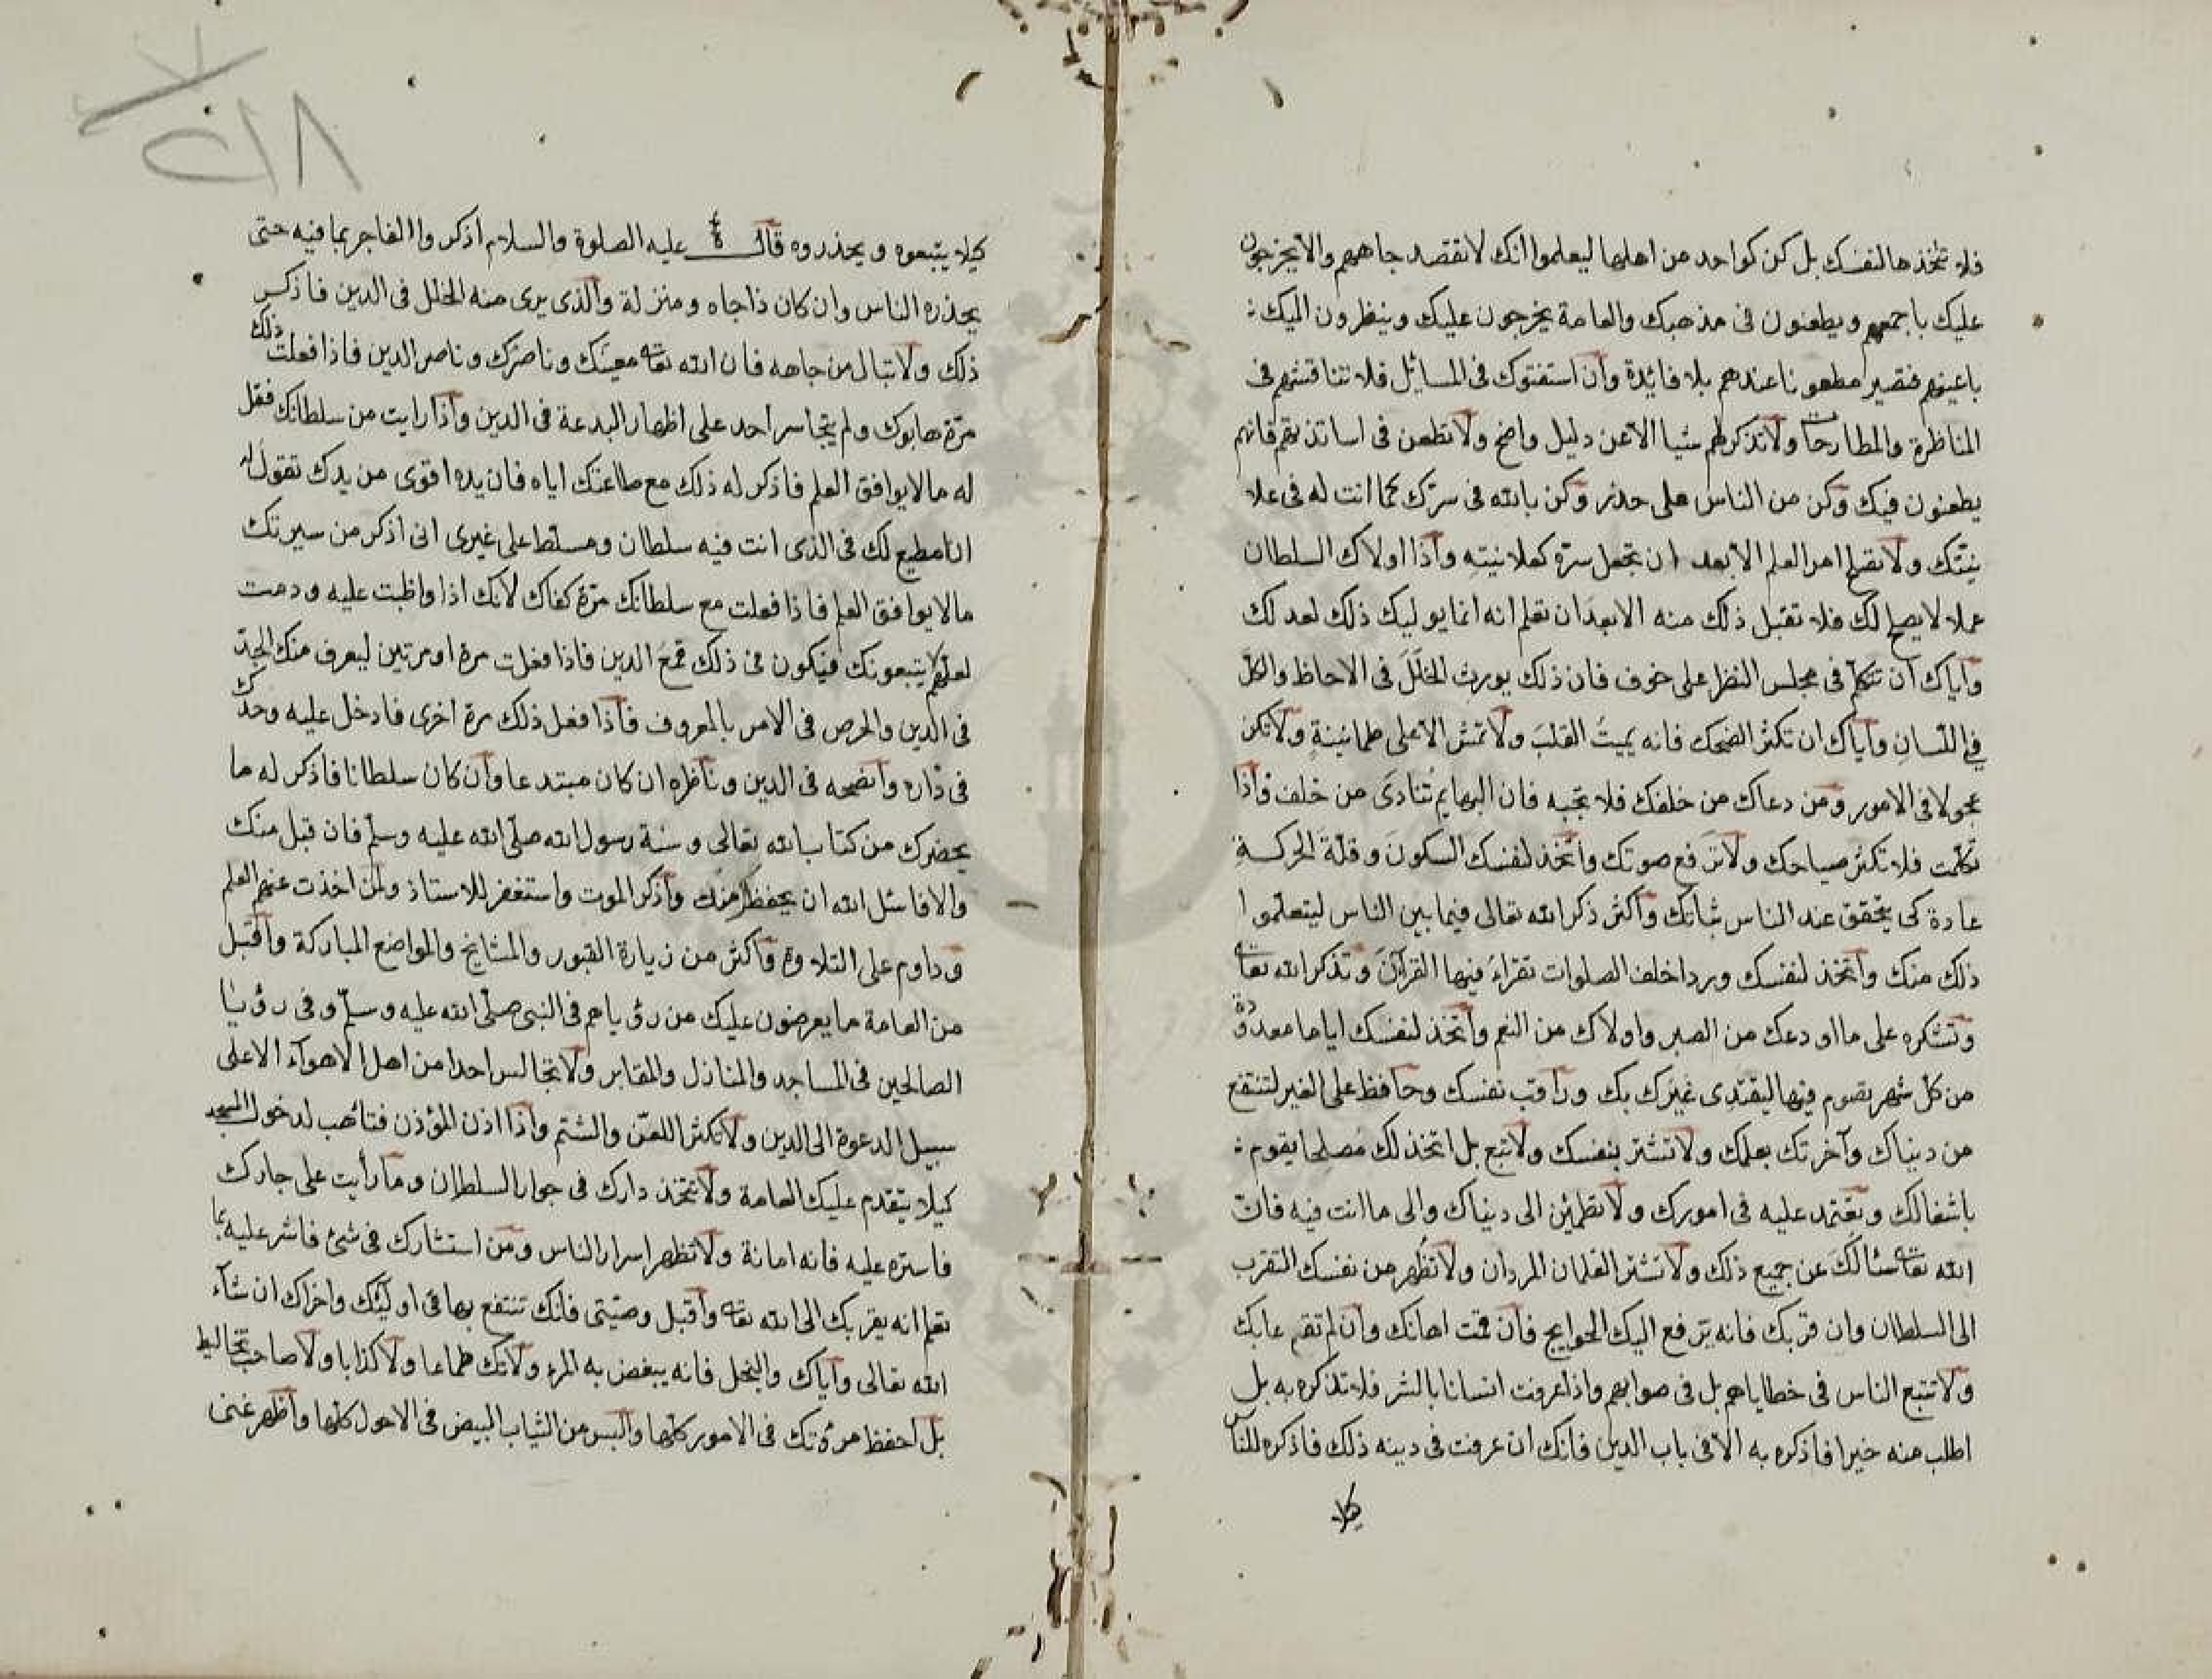 فلا تتخذها لنفسك بل كن كواحد من اهلها ليعلموا انك لا تقصد جاههم والا يخرجون
عليك باجمعهم ويطعنون فى مذهبك والعامة يخرجون عليك وينظرون اليك
باعينهم فتصير مطعونا عندهم بلا فائدة وان استفتوك فى المسائل فلا تناقشهم فى
المناظرة والمطارحات ولا تذكر لهم شيا الا عن دليل واضح ولا تطعن فى اساتذتهم فانهم
يطعنون فيك وكن من الناس على حذر وكن بالله فى سرك كما انت له فى علا
نيتك ولا يصلح امر العلم الا بعد ان تجعل سره كعلانيته واذا اولاك السلطان
عملا لا يصلح لك فلا تقبل ذلك منه الا بعد ان تعلم انه انما يوليك ذلك لعد لك
واياك ان تتكلم فى مجلس النظر على خوف فان ذلك يورث الخلل فى الاحاظ والكل
فى اللسان واياك ان تكثر الضحك فانه يميت القلب ولا تمش الا على طمانينة ولا تكن
عجولا فى الامور ومن دعاك من خلفك فلا تجبه فان البهايم تنادى من خلف واذا
تكلمت فلا تكثر صياحك ولا ترفع صوتك واتخذ لنفسك السكون وقلة الحركة
عادة كى يتحقق عند الناس ثباتك واكثر ذكر الله تعالى فيما بين الناس ليتعلموا
ذلك منك واتخذ لنفسك وردا خلف الصلوات تقراء فيها القرآن وتذكر الله تعا
وتشكره على ما اودعك من الصبر واولاك من النعم واتخذ لنفسك اياما معدودة
من كل شهر تصوم فيها ليقتدى غيرك بك وراقب نفسك وحافظ على الغير لتنتفع
من دنياك وآخرتك بعلمك ولا تشتر بنفسك ولا تبع بل اتخذ لك مصلحا يقوم
باشغالك وتعتمد عليه فى امورك ولا تطمئن الى دنياك والى ما انت فيه فان
الله تعا سئالك عن جميع ذلك ولا تشتر الغلمان المردان ولا تظهر من نفسك التقرب
الى السلطان وان قربك فانه يرفع اليك الحوايج فان قمت اهانك وان لم تقم عابك
ولا تتبع الناس فى خطاياهم بل فى صوابهم واذا عرفت انسانا بالشر فلا تذكره به بل
اطلب منه خيرا فاذكره به الا فى باب الدين فانك ان عرفت فى دينه ذلك فاذكره للناس
كيلا
كيلا يتبعوه ويحذروه قال عليه الصلوة والسلام اذكروا الفاجر بما فيه حتى
يحذره الناس وان كان ذا جاه ومنزلة والذى يرى منه الخلل فى الدين فاذكر
ذلك ولا تبال من جاهه فان الله تعا معينك وناصرك وناصر الدين فاذا فعلت ذلك
مرة هابوك ولم يتجاسر احد على اظهار البدعة فى الدين واذا رايت من سلطانك فقل
له ما لا يوافق العلم فاذكر له ذلك مع طاعتك اياه فان يده اقوى من يدك تقول له
انا مطيع لك فى الذى انت فيه سلطان ومسلط على غيرى انى اذكر من سيرتك
ما لا يوافق العلم فاذا فعلت مع سلطانك مرة كفاك لانك اذا واظبت عليه ودمت
لعلهم لا يتبعونك فيكون فى ذلك قمع الدين فاذا فعلت مرة او مرتين ليعرف منك الجد
فى الدين والحرص فى الامر بالمعروف فاذا فعل ذلك مرة اخرى فادخل عليه وحدك
فى داره وانصحه فى الدين وناظره ان كان مبتدعا وان كان سلطانا فاذكر له ما
يحضرك من كتاب الله تعالى وسنة رسول الله صلى الله عليه وسلم فان قبل منك
والا فاسئل الله ان يحفظك منه واذكر الموت واستغفر للاستاذ ولمن اخذت عنهم العلم
وداوم على التلاوة واكثر من زيارة القبور والمشايخ والمواضع المباركة واقبل
من العامة ما يعرضون عليك من رؤياهم فى النبى صلى الله عليه وسلم وفى رؤيا
الصالحين فى المساجد والمنازل والمقابر ولا تجالس احدا من اهل الاهوآء الا على
سبيل الدعوة الى الدين ولا تكثر اللعن والشتم واذا اذن المؤذن فتاهب لدخول المسجد
كيلا يتقدم عليك العامة ولا تتخذ دارك فى جوار السلطان وما رأيت على جارك
فاستره عليه فانه امانة ولا تظهر اسرار الناس ومن استشارك فى شئ فاشر عليه بما
تعلم انه يقربك الى الله تعا واقبل وصيتى فانك تنتفع بها فى اوليك واخراك ان شآء
الله تعالى واياك والبخل فانه يبغض به المرء ولا تك طماعا ولا كذابا ولا صاحب تخاليط
بل احفظ مروتك فى الامور كلها والبس من الثياب البيض فى الاحول كلها واظهر غنى